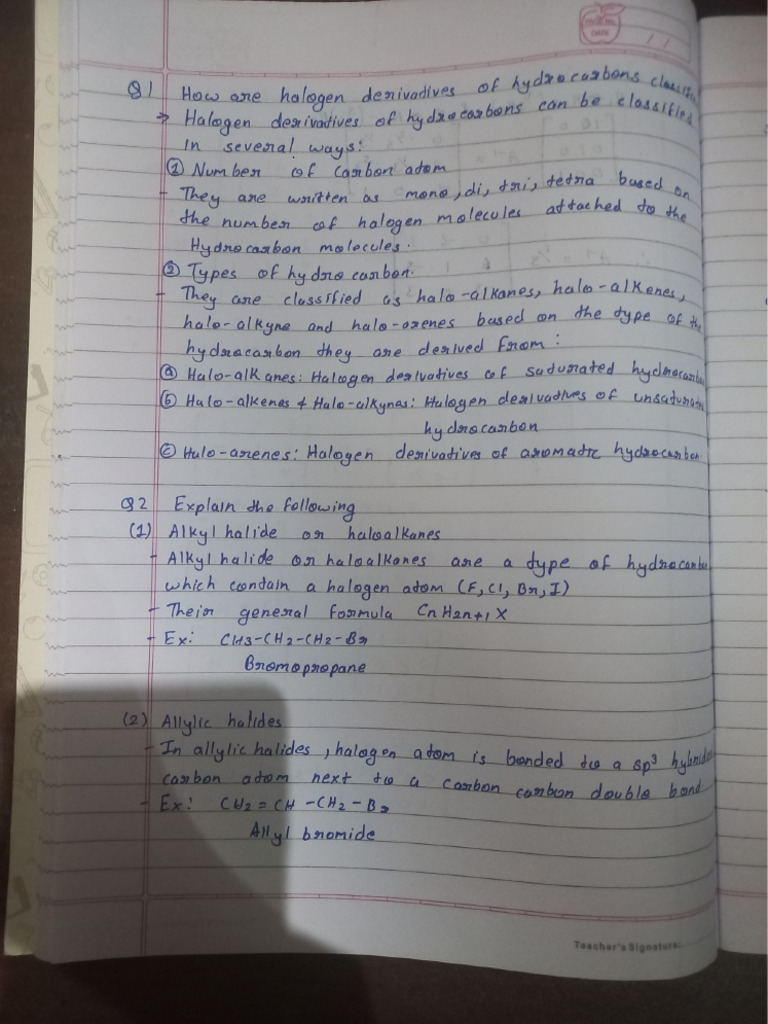 PAGE NO.
DATE
/ /
Q1 How are halogen derivatives of hydrocarbons
→ Halogen derivatives of hydrocarbons can be classified
in several ways:
① Number of carbon atom
- They are written as mono, di, tri, tetra based on
the number of halogen molecules attached to the
Hydrocarbon molecules.
② Types of hydro carbon.
- They are classified as halo-alkanes, halo-alkenes,
halo-alkyne and halo-arenes based on the type of the
hydrocarbon they are derived from:
ⓐ Halo-alkanes: Halogen derivatives of saturated
ⓑ Halo-alkenes & Halo-alkynes: Halogen derivatives of
hydrocarbon
ⓒ Halo-arenes: Halogen derivatives of aromatic hydrocarbon
Q2 Explain the following
(1) Alkyl halide or haloalkanes
- Alkyl halide or haloalkanes are a type of
which contain a halogen atom (F, Cl, Br, I)
- Their general formula CnH2n+1X
- Ex: CH3-CH2-CH2-Br
Bromopropane
(2) Allylic halides
- In allylic halides, halogen atom is bonded to a sp³
carbon atom next to a carbon carbon double bond.
- Ex: CH2=CH-CH2-Br
Allyl bromide
Teacher's Signature: